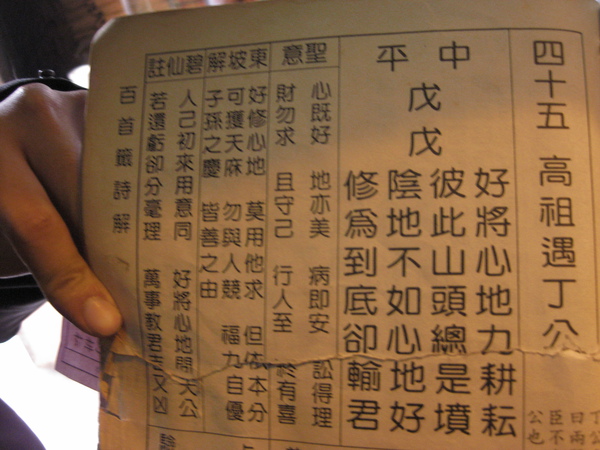 四十五 高祖遇丁公
公臣曰丁
也不兩公
中平
戊戊
好將心地力耕耘
彼此山頭總是墳
陰地不如心地好
修為到底卻輸君
聖意
心既好 地亦美 病即安 訟得理
財勿求 且守己 行人至 終有喜
東坡解
好修心地 莫用他求 但依本分
可獲天庥 勿與人競 福九自優
子孫之慶 皆善之由
碧仙註
人己初來用意同 好將心地問天公
若還虧卻分毫理 萬事教君吉又凶
百首籤詩解